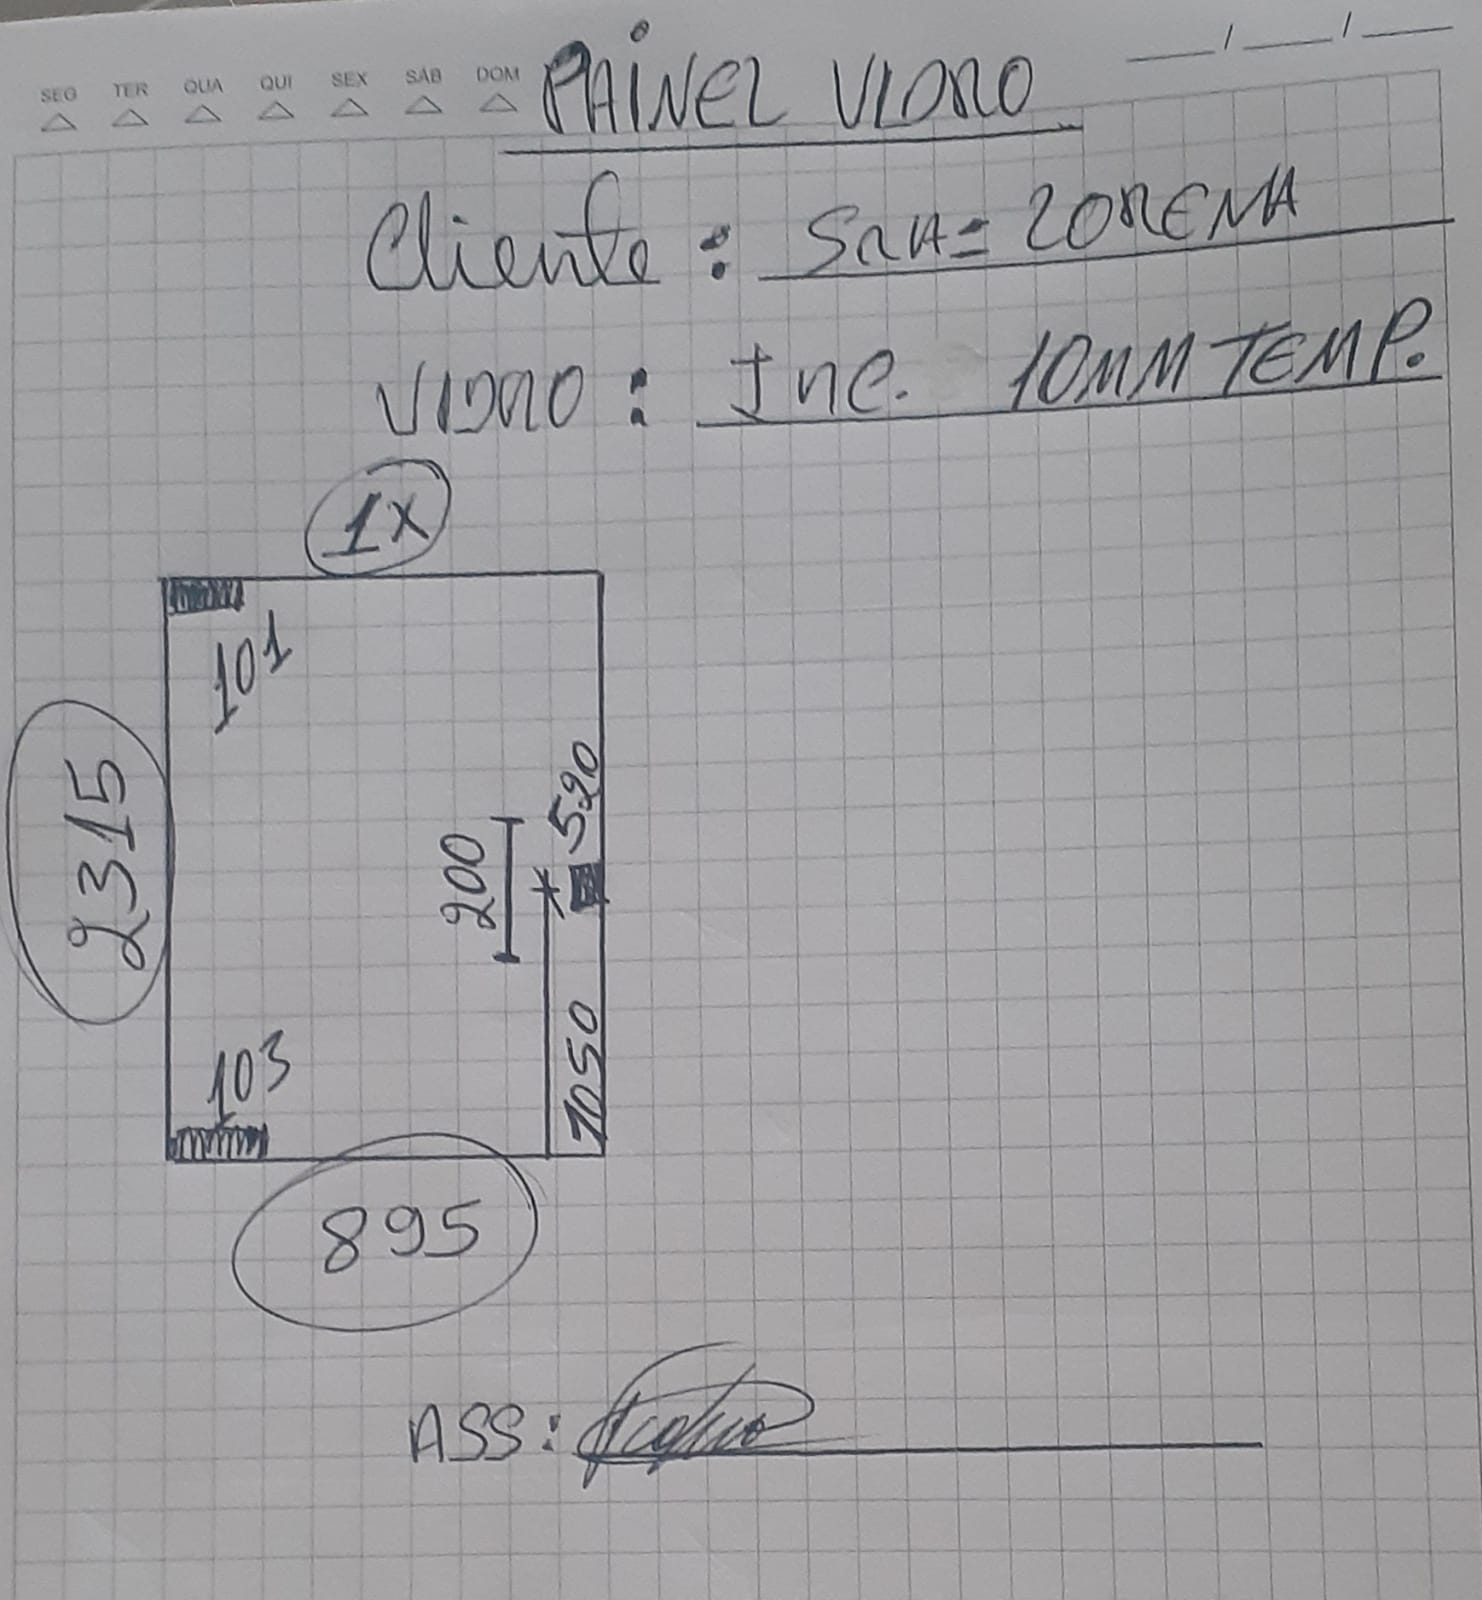 SEG TER QUA QUI SEX SÁB DOM
PAINEL VIDRO
Cliente: SRA= LORENA
VIDRO: Inc. 10MM TEMP.
1X
101
2315
520
200
1050
103
895
ASS: